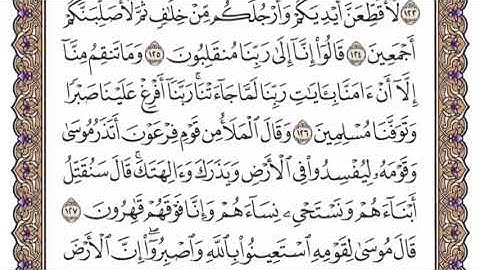 ١٢٣ لَأُقَطِّعَنَّ أَيْدِيَكُمْ وَأَرْجُلَكُم مِّنْ خِلَٰفٍ ثُمَّ لَأُصَلِّبَنَّكُمْ
أَجْمَعِينَ ١٢٤ قَالُوٓا۟ إِنَّآ إِلَىٰ رَبِّنَا مُنقَلِبُونَ ١٢٥ وَمَا تَنقِمُ مِنَّآ
إِلَّآ أَنْ ءَامَنَّا بِـَٔايَٰتِ رَبِّنَا لَمَّا جَآءَتْنَا ۚ رَبَّنَآ أَفْرِغْ عَلَيْنَا صَبْرًا
وَتَوَفَّنَا مُسْلِمِينَ ١٢٦ وَقَالَ ٱلْمَلَأُ مِن قَوْمِ فِرْعَوْنَ أَتَذَرُ مُوسَىٰ
وَقَوْمَهُۥ لِيُفْسِدُوا۟ فِى ٱلْأَرْضِ وَيَذَرَكَ وَءَالِهَتَكَ ۚ قَالَ سَنُقَتِّلُ
أَبْنَآءَهُمْ وَنَسْتَحْىِۦ نِسَآءَهُمْ وَإِنَّا فَوْقَهُمْ قَٰهِرُونَ ١٢٧
قَالَ مُوسَىٰ لِقَوْمِهِ ٱسْتَعِينُوا۟ بِٱللَّهِ وَٱصْبِرُوٓا۟ ۖ إِنَّ ٱلْأَرْضَ